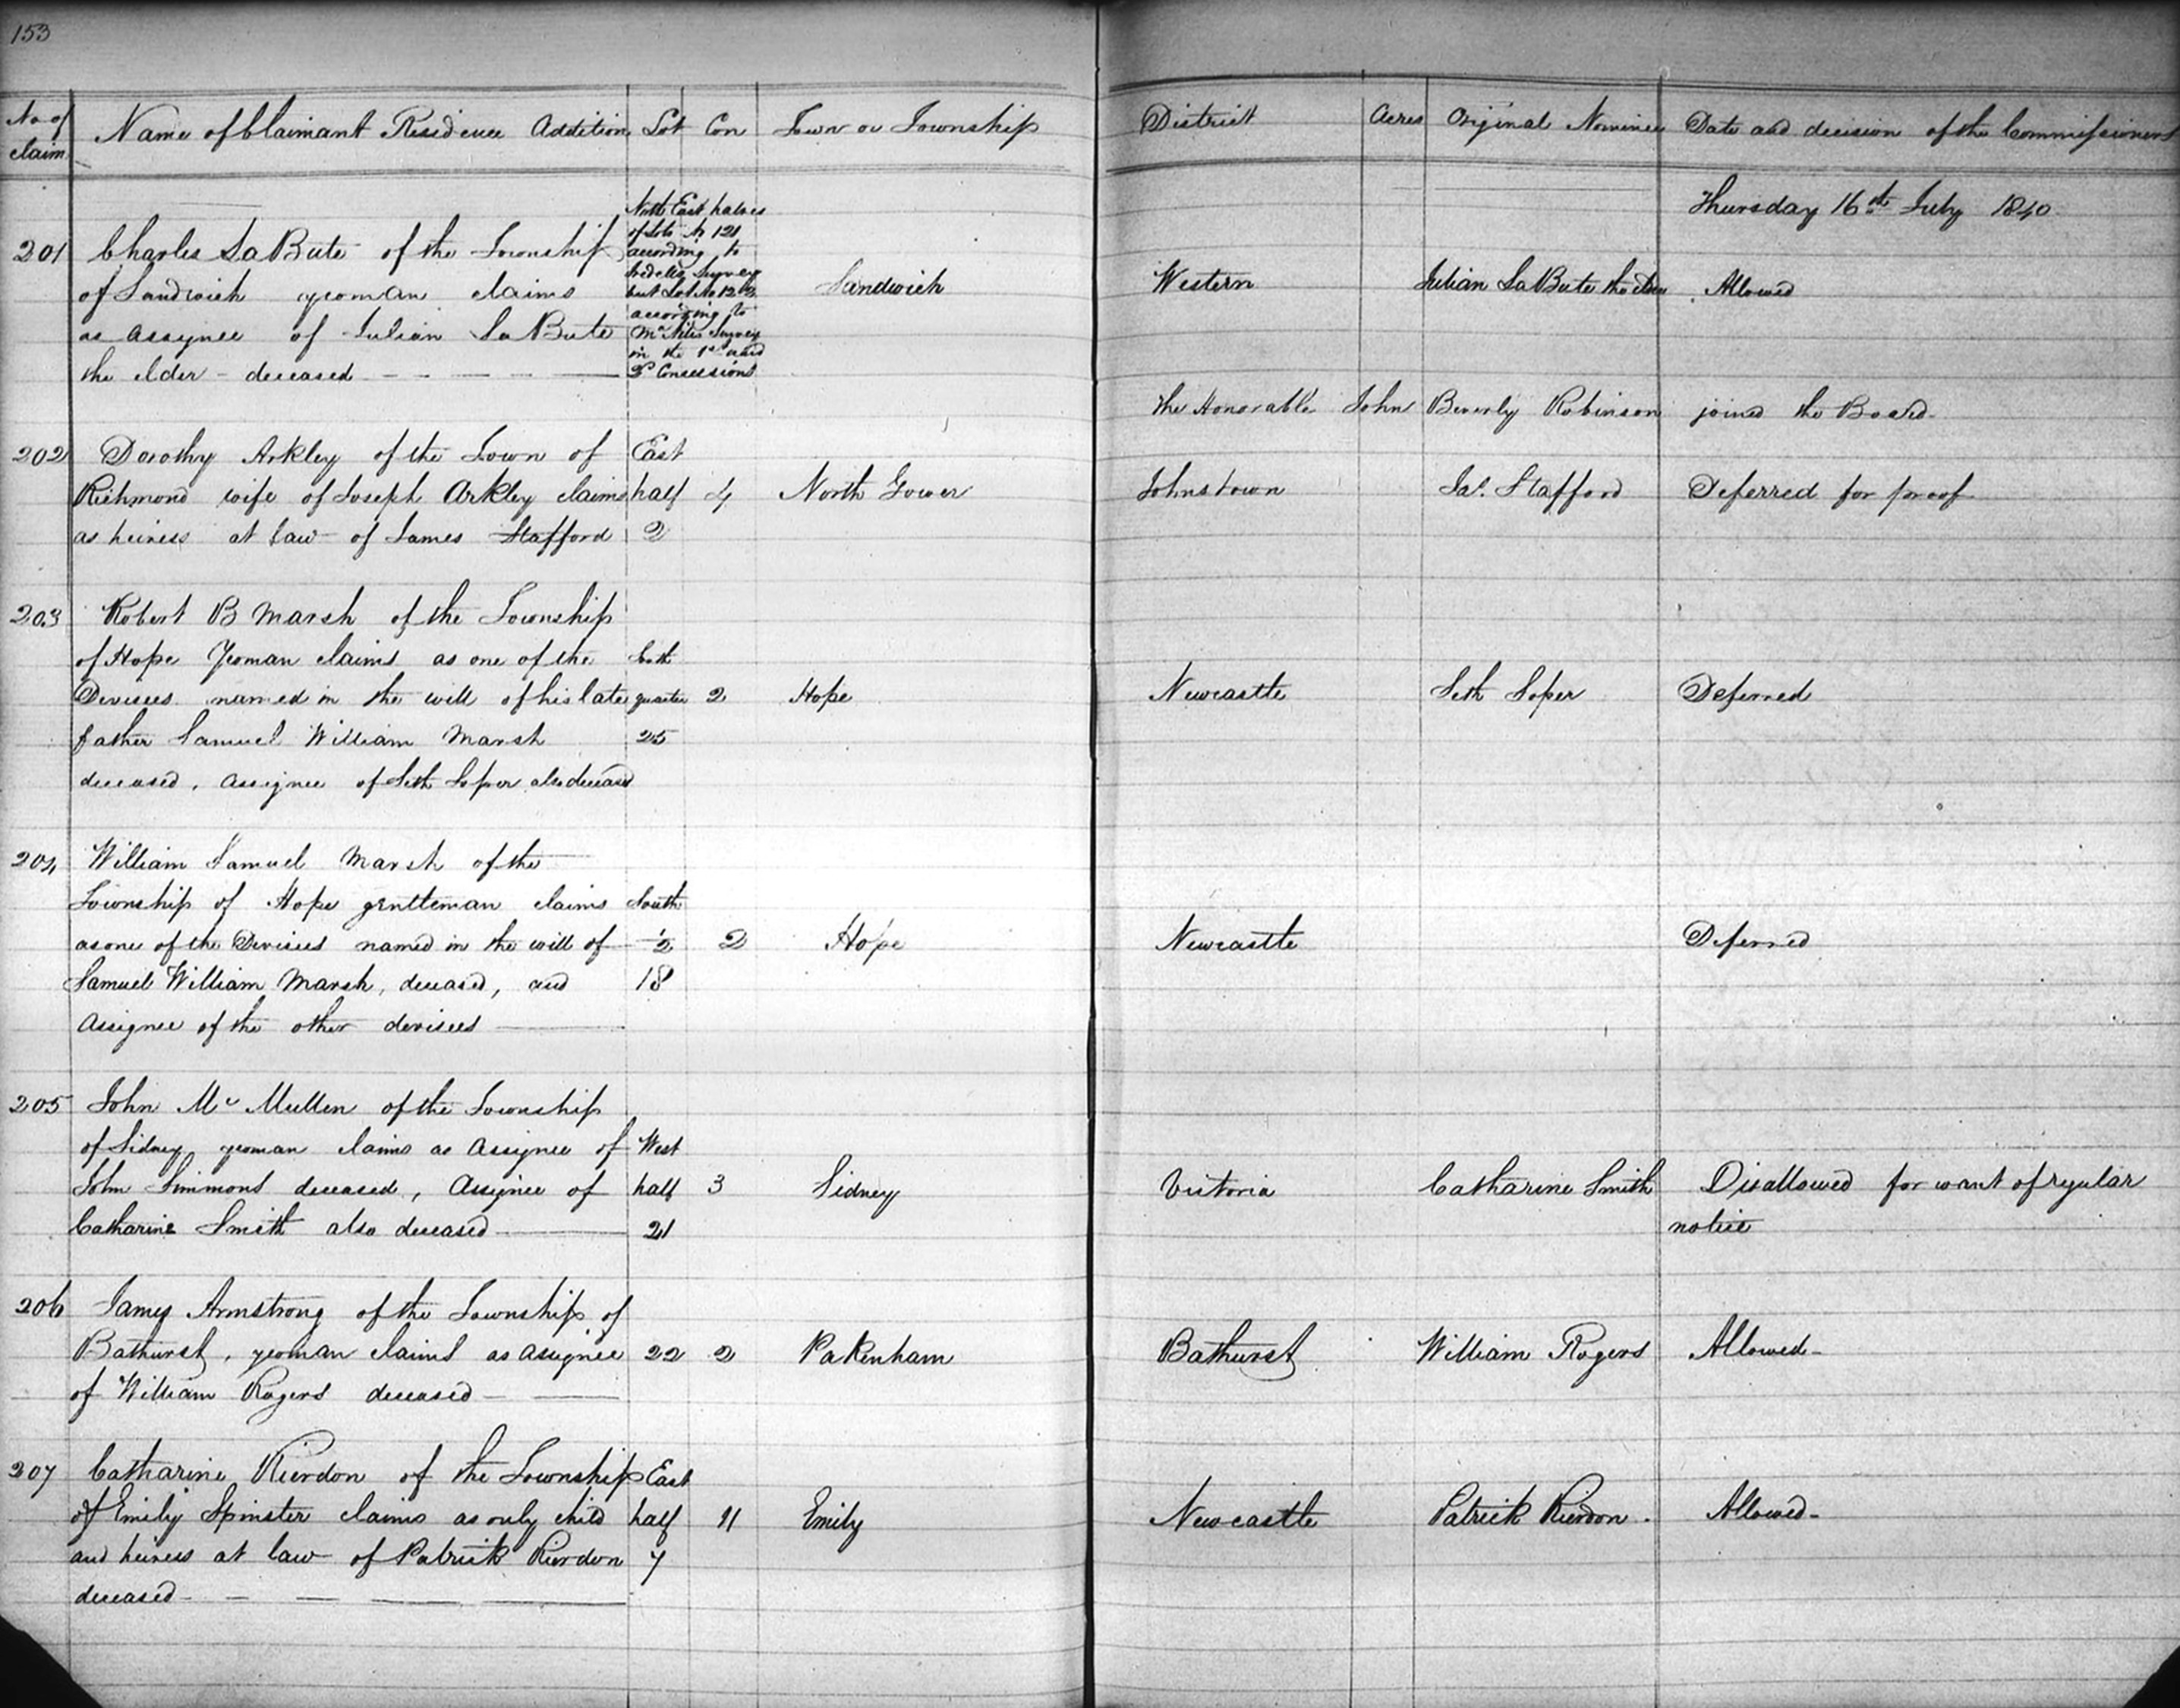 153
No of claim
Name of Claimant Residence Addition
Lot
Con
Town or Township
District
Acres
Original Nominee
Date and decision of the Commissioners
Thursday 16th July 1840
201
Charles LaBute of the Township
of Sandwich yeoman claims
as assignee of Julian LaBute
the elder - deceased
North East halves
of Lots No 121
according to
Survey
but Lot No
according to
Survey
in the 1st and
2d Concessions
Sandwich
Western
Julian LaBute the elder
Allowed
The Honorable John Beverly Robinson joined the Board
202
Dorothy Arkley of the Town of
Richmond wife of Joseph Arkley claims
as heiress at law of James Stafford
East
half
2
4
North Gower
Johnstown
Jas. Stafford
Deferred for proof
203
Robert B Marsh of the Township
of Hope Yeoman claims as one of the
Devisees named in the will of his late
father Samuel William Marsh
deceased, assignee of Seth Soper also deceased
quarter
25
2
Hope
Newcastle
Seth Soper
Deferred
204
William Samuel Marsh of the
Township of Hope gentleman claims
as one of the Devisees named in the will of
Samuel William Marsh, deceased, and
Assignee of the other devisees
South
1/2
18
2
Hope
Newcastle
Deferred
205
John Mc Mullen of the Township
of Sidney yeoman claims as Assignee of
John Simmons deceased, Assignee of
Catharine Smith also deceased
West
half
21
3
Sidney
Victoria
Catharine Smith
Disallowed for want of regular
notice
206
James Armstrong of the Township of
Bathurst, yeoman claims as assignee
of William Rogers deceased
22
2
Pakenham
Bathurst
William Rogers
Allowed-
207
Catharine Rierdon of the Township
of Emily Spinster claims as only child
and heiress at law of Patrick Rierdon
deceased-
East
half
7
11
Emily
Newcastle
Patrick Rierdon.
Allowed-